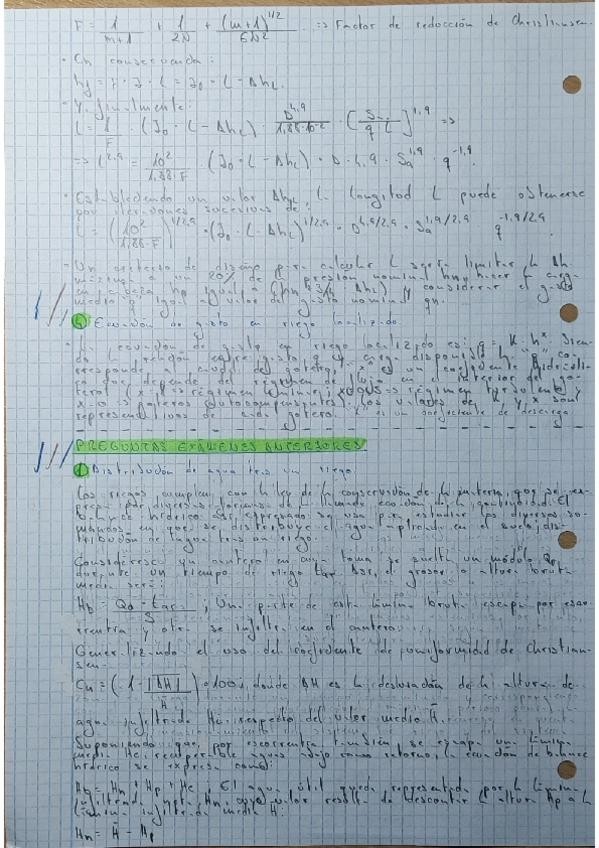 F = 1/(m+1) + 1/2N + (m+1)^1/2 / 6N² => Factor de reducción de Christiansen.
· En consecuencia:
hf = F · J · L = J0 · L - ΔhL
· Y, finalmente:
L = 1/F · (J0 · L - ΔhL) · D^4,9 / 1,88·10^-2 · [Sa / q L]^1,9 =>
=> L^2,9 = 10² / 1,88·F · (J0 · L - ΔhL) · D^4,9 · Sa^1,9 · q^-1,9
· Estableciendo un valor ΔhL, la longitud L puede obtenerse
por iteraciones sucesivas de:
L = (10² / 1,88·F)^1/2,9 · (J0 · L - ΔhL)^1/2,9 · D^4,9/2,9 · Sa^1,9/2,9 q^-1,9/2,9
· Un criterio de diseño para calcular L sería limitar la Δh
máxima a un 20% de la presión nominal hn, hacer la carga
en cabeza igual a y considerar el gasto
medio q igual al valor del gasto nominal qn.
4 Ecuación de gasto en riego localizado.
· La ecuación de gasto en riego localizado es: q = K · h^x. Sien-
do la relación entre gasto, q y carga disponible h. "q" co-
rresponde al caudal del gotero, "x" es un coeficiente hidráuli-
co que depende del régimen de flujo en el interior del go-
tero (x=1 => régimen laminar; x=0,5 => régimen turbulento;
x=0 => goteros autocompensantes). Los valores de K y x son
representativos de cada gotero. K es un coeficiente de descarga.
PREGUNTAS EXÁMENES ANTERIORES
1 Distribución de agua tras un riego.
Los riegos cumplen con la ley de la conservación de la materia, que se ex-
presa por diversas formas de la llamada ecuación de la continuidad. El
balance hídrico así expresado se usa para estudiar los diversos su-
mandos en que se distribuye el agua aplicada en el suelo; dis-
tribución de agua tras un riego.
Consideremos un cantero en cuya toma se suelta un módulo Q0,
durante un tiempo de riego tar. Así, el grosor o altura bruta
media será:
Hb = Q0 · tar / S ; Una parte de esta lámina bruta escapa por esco-
rrentía y otra se infiltra en el cantero.
Generalizando el uso del coeficiente de uniformidad de Christian-
sen:
Cu = (1 - |ΔH| / H̄) · 100; donde ΔH es la desviación de la altura de
agua infiltrada Ha respecto del valor medio H̄.
Suponiendo que por escorrentía también se escapa una lámina
media He, recuperable aguas abajo como retorno, la ecuación de balance
hídrico se expresa como:
Hb = Hn + Hp + He ; El agua útil queda representada por la lámina
infiltrada neta, Hn, cuyo valor resulta de descontar la altura Hp a la
lámina infiltrada media H̄
Hn = H̄ - Hp